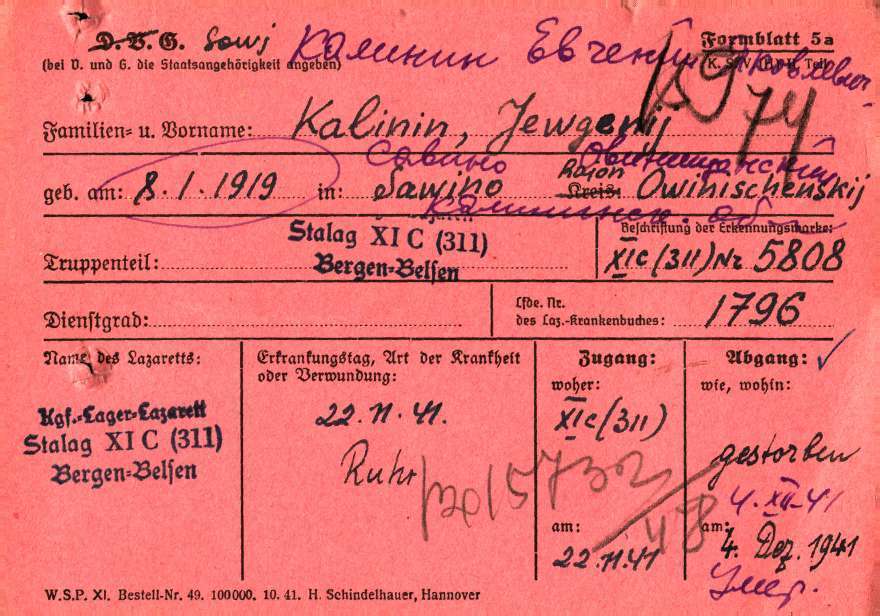 D.V.G. Sowj Калинин Евгений Яковлевич
Formblatt 5a
(bei V. und G. die Staatsangehörigkeit angeben)
Familien- u. Vorname: Kalinin, Jewgenij
Савино Овинищенский
geb. am: 8.1.1919 in: Sawino Kreis: Rayon Owinischenskij
Калининск. об
Stalag XI C (311)
Bergen-Belsen
Truppenteil:
Beschriftung der Erkennungsmarke:
XIC (311) Nr 5808
Dienstgrad:
Lfde. Nr.
des Laz.-Krankenbuches: 1796
Name des Lazaretts:
Kgf.-Lager-Lazarett
Stalag XI C (311)
Bergen-Belsen
Erkrankungstag, Art der Krankheit
oder Verwundung:
22.11.41.
Ruhr
Zugang:
woher:
XIC (311)
am:
22.11.41
Abgang:
wie, wohin:
gestorben
4.XII-41
am:
4. Dez. 1941
Умер.
W.S.P. XI. Bestell-Nr. 49. 100000. 10. 41. H. Schindelhauer, Hannover